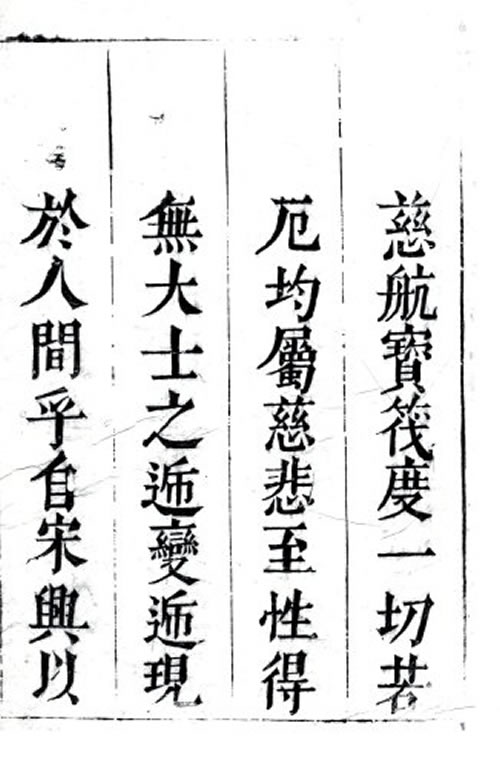 慈航寶筏度一切苦
厄均屬慈悲至性得
無大士之逓變逓現
於人間乎自宋興以